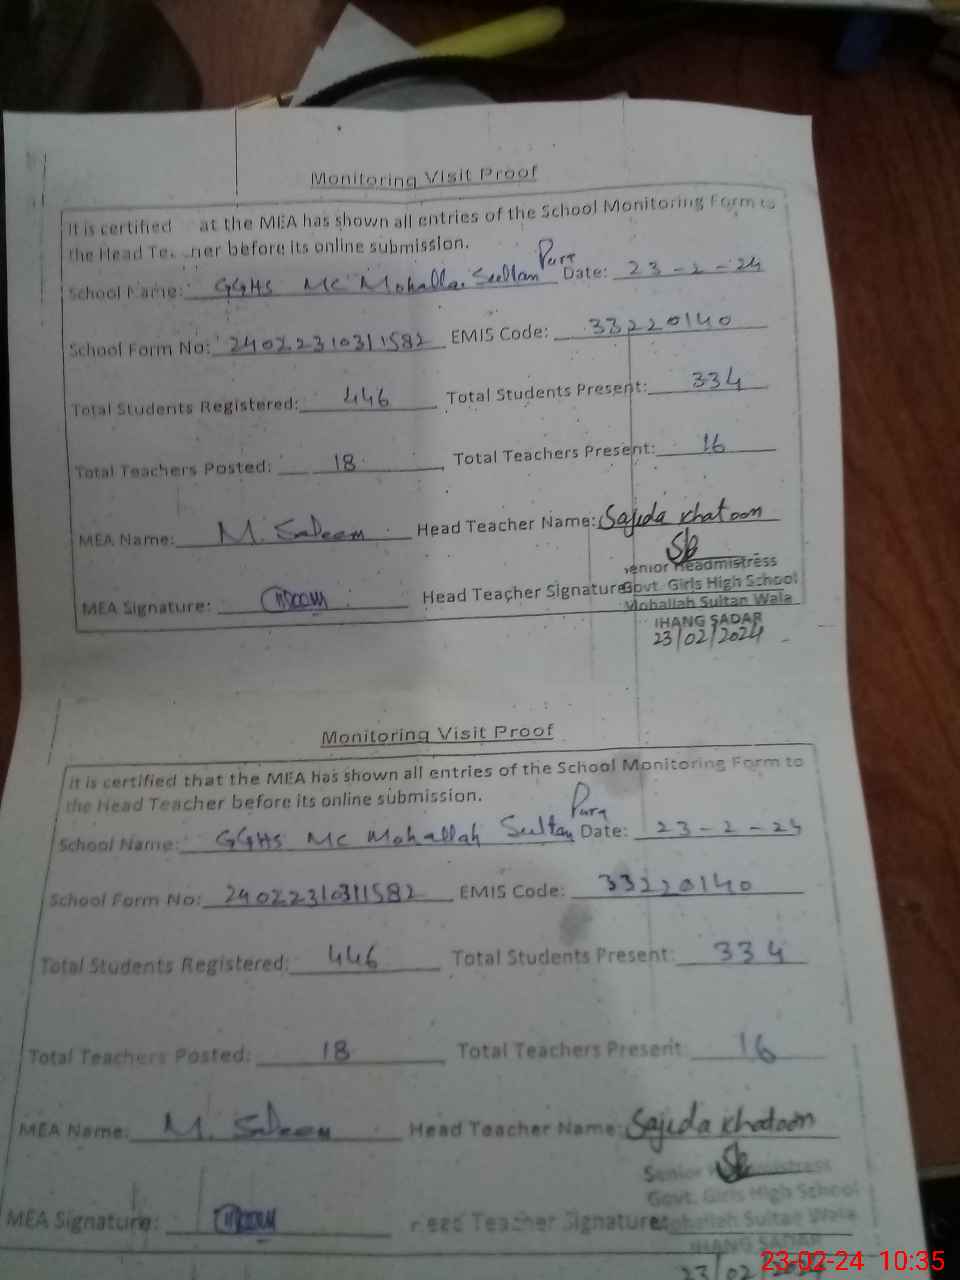 Monitoring Visit Proof
It is certified at the MEA has shown all entries of the School Monitoring Form to
the Head Te.. ner before its online submission.
School Name: GGHS MC Mohallah Sultan Pura Date: 23-2-24
School Form No: 24022310311582 EMIS Code: 33220140
Total Students Registered: 446 Total Students Present: 334
Total Teachers Posted: 18 Total Teachers Present: 16
MEA Name: M. Saleem Head Teacher Name: Sajida Khatoon
MEA Signature: Head Teacher Signature:
Senior Headmistress
Govt. Girls High School
Mohallah Sultan Wala
JHANG SADAR
23/02/2024
Monitoring Visit Proof
It is certified that the MEA has shown all entries of the School Monitoring Form to
the Head Teacher before its online submission.
School Name: GGHS MC Mohallah Sultan Pura Date: 23-2-24
School Form No: 24022310311582 EMIS Code: 33220140
Total Students Registered: 446 Total Students Present: 334
Total Teachers Posted: 18 Total Teachers Present: 16
MEA Name: M. Saleem Head Teacher Name: Sajida Khatoon
Senior Headmistress
Govt. Girls High School
MEA Signature: Head Teacher Signature: Mohallah Sultan Wala
JHANG SADAR
23/02/
23-02-24 10:35